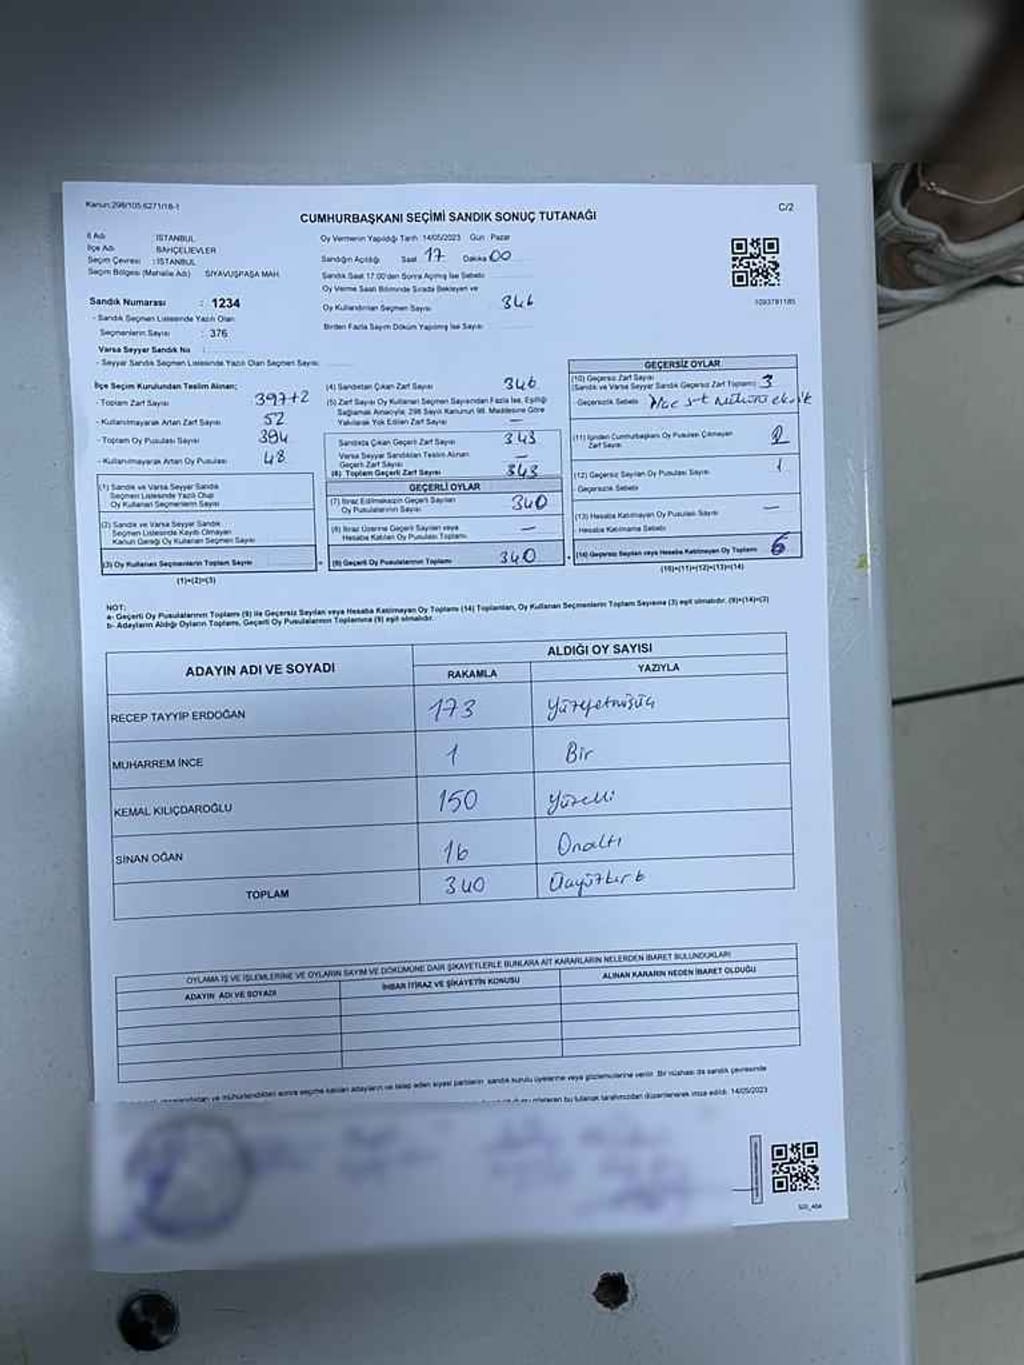 Kanun:298/105 6271/18-1
C/2
CUMHURBAŞKANI SEÇİMİ SANDIK SONUÇ TUTANAĞI
İl Adı : İSTANBUL
İlçe Adı : BAHÇELİEVLER
Seçim Çevresi : İSTANBUL
Seçim Bölgesi (Mahalle Adı) SİYAVUŞPAŞA MAH.
Sandık Numarası : 1234
- Sandık Seçmen Listesinde Yazılı Olan
Seçmenlerin Sayısı : 376
Varsa Seyyar Sandık No :
- Seyyar Sandık Seçmen Listesinde Yazılı Olan Seçmen Sayısı
Oy Vermenin Yapıldığı Tarih :14/05/2023 Gün : Pazar
Sandığın Açıldığı Saat 17 Dakika 00
Sandık Saat 17:00'den Sonra Açılmış İse Sebebi
Oy Verme Saati Bitiminde Sırada Bekleyen ve
Oy Kullandırılan Seçmen Sayısı 346
Birden Fazla Sayım Döküm Yapılmış İse Sayısı
1093781185
İlçe Seçim Kurulundan Teslim Alınan;
- Toplam Zarf Sayısı 397+2
- Kullanılmayarak Artan Zarf Sayısı 52
- Toplam Oy Pusulası Sayısı 394
- Kullanılmayarak Artan Oy Pusulası 48
(1) Sandık ve Varsa Seyyar Sandık
Seçmen Listesinde Yazılı Olup
Oy Kullanan Seçmenlerin Sayısı
(2) Sandık ve Varsa Seyyar Sandık
Seçmen Listesinde Kayıtlı Olmayan
Kanun Gereği Oy Kullanan Seçmen Sayısı
(3) Oy Kullanan Seçmenlerin Toplam Sayısı
(1)+(2)=(3)
(4) Sandıktan Çıkan Zarf Sayısı 346
(5) Zarf Sayısı Oy Kullanan Seçmen Sayısından Fazla İse, Eşitliği
Sağlamak Amacıyla; 298 Sayılı Kanunun 98. Maddesine Göre
Yakılarak Yok Edilen Zarf Sayısı —
Sandıkta Çıkan Geçerli Zarf Sayısı 343
Varsa Seyyar Sandıktan Teslim Alınan
Geçerli Zarf Sayısı —
(6) Toplam Geçerli Zarf Sayısı 343
GEÇERLİ OYLAR
(7) İtiraz Edilmeksizin Geçerli Sayılan
Oy Pusulalarının Sayısı 340
(8) İtiraz Üzerine Geçerli Sayılan veya
Hesaba Katılan Oy Pusulası Toplamı —
(9) Geçerli Oy Pusulalarının Toplamı 340
GEÇERSİZ OYLAR
(10) Geçersiz Zarf Sayısı
(Sandık ve Varsa Seyyar Sandık Geçersiz Zarf Toplamı) 3
- Geçersizlik Sebebi
(11) İçinden Cumhurbaşkanı Oy Pusulası Çıkmayan
Zarf Sayısı 2
(12) Geçersiz Sayılan Oy Pusulası Sayısı 1
- Geçersizlik Sebebi
(13) Hesaba Katılmayan Oy Pusulası Sayısı —
- Hesaba Katılmama Sebebi
(14) Geçersiz Sayılan veya Hesaba Katılmayan Oy Toplamı 6
(10)+(11)+(12)+(13)=(14)
NOT:
a- Geçerli Oy Pusulalarının Toplamı (9) ile Geçersiz Sayılan veya Hesaba Katılmayan Oy Toplamı (14) Toplamları, Oy Kullanan Seçmenlerin Toplam Sayısına (3) eşit olmalıdır. (9)+(14)=(3)
b- Adayların Aldığı Oyların Toplamı, Geçerli Oy Pusulalarının Toplamına (9) eşit olmalıdır.
ADAYIN ADI VE SOYADI
ALDIĞI OY SAYISI
RAKAMLA YAZIYLA
RECEP TAYYİP ERDOĞAN 173 Yüzyetmişüç
MUHARREM İNCE 1 Bir
KEMAL KILIÇDAROĞLU 150 Yüzelli
SİNAN OĞAN 16 Onaltı
TOPLAM 340 Üçyüzkırk
OYLAMA İŞ VE İŞLEMLERİNE VE OYLARIN SAYIM VE DÖKÜMÜNE DAİR ŞİKAYETLERLE BUNLARA AİT KARARLARIN NELERDEN İBARET BULUNDUKLARI
ADAYIN ADI VE SOYADI
İHBAR İTİRAZ VE ŞİKAYETİN KONUSU
ALINAN KARARIN NEDEN İBARET OLDUĞU
ve mühürlendikten sonra seçime katılan adayların ve talep eden siyasi partilerin sandık kurulu üyelerine veya gözlemcilerine verilir. Bir nüshası da sandık çevresinde
bu tutanak tarafımızdan düzenlenerek imza edildi. 14/05/2023